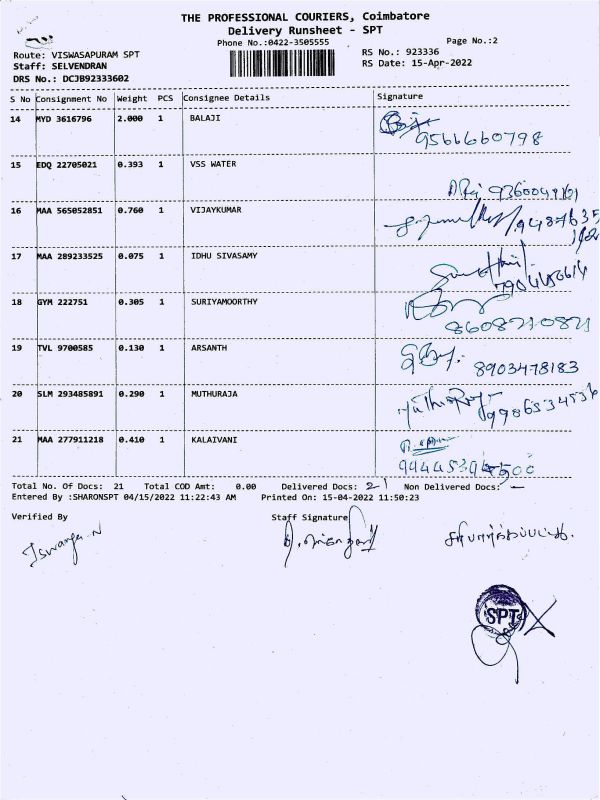 THE PROFESSIONAL COURIERS, Coimbatore
Delivery Runsheet - SPT
Phone No.:0422-3505555 Page No.:2
Route: VISWASAPURAM SPT RS No.: 923336
Staff: SELVENDRAN RS Date: 15-Apr-2022
DRS No.: DCJB92333602
S No Consignment No Weight PCS Consignee Details Signature
14 MYD 3616796 2.000 1 BALAJI
9566660798
15 EDQ 22705021 0.393 1 VSS WATER
16 MAA 565052851 0.760 1 VIJAYKUMAR
17 MAA 289233525 0.075 1 IDHU SIVASAMY
18 GYM 222751 0.305 1 SURIYAMOORTHY
8608710871
19 TVL 9700585 0.130 1 ARSANTH
8903478183
20 SLM 293485891 0.290 1 MUTHURAJA
21 MAA 277911218 0.410 1 KALAIVANI
Total No. Of Docs: 21 Total COD Amt: 0.00 Delivered Docs: 21 Non Delivered Docs: –
Entered By :SHARONSPT 04/15/2022 11:22:43 AM Printed On: 15-04-2022 11:50:23
Verified By Staff Signature
சரிபார்க்கப்பட்டது.
SPT